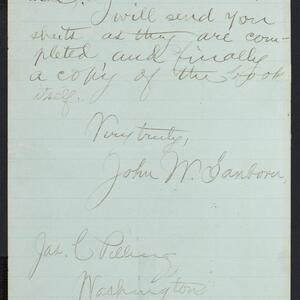 I will send you
sheets as they are com-
pleted and finally
a copy of the book
itself.
Very truly,
John W. Sanborn,
Jas. C Pilling
Washington